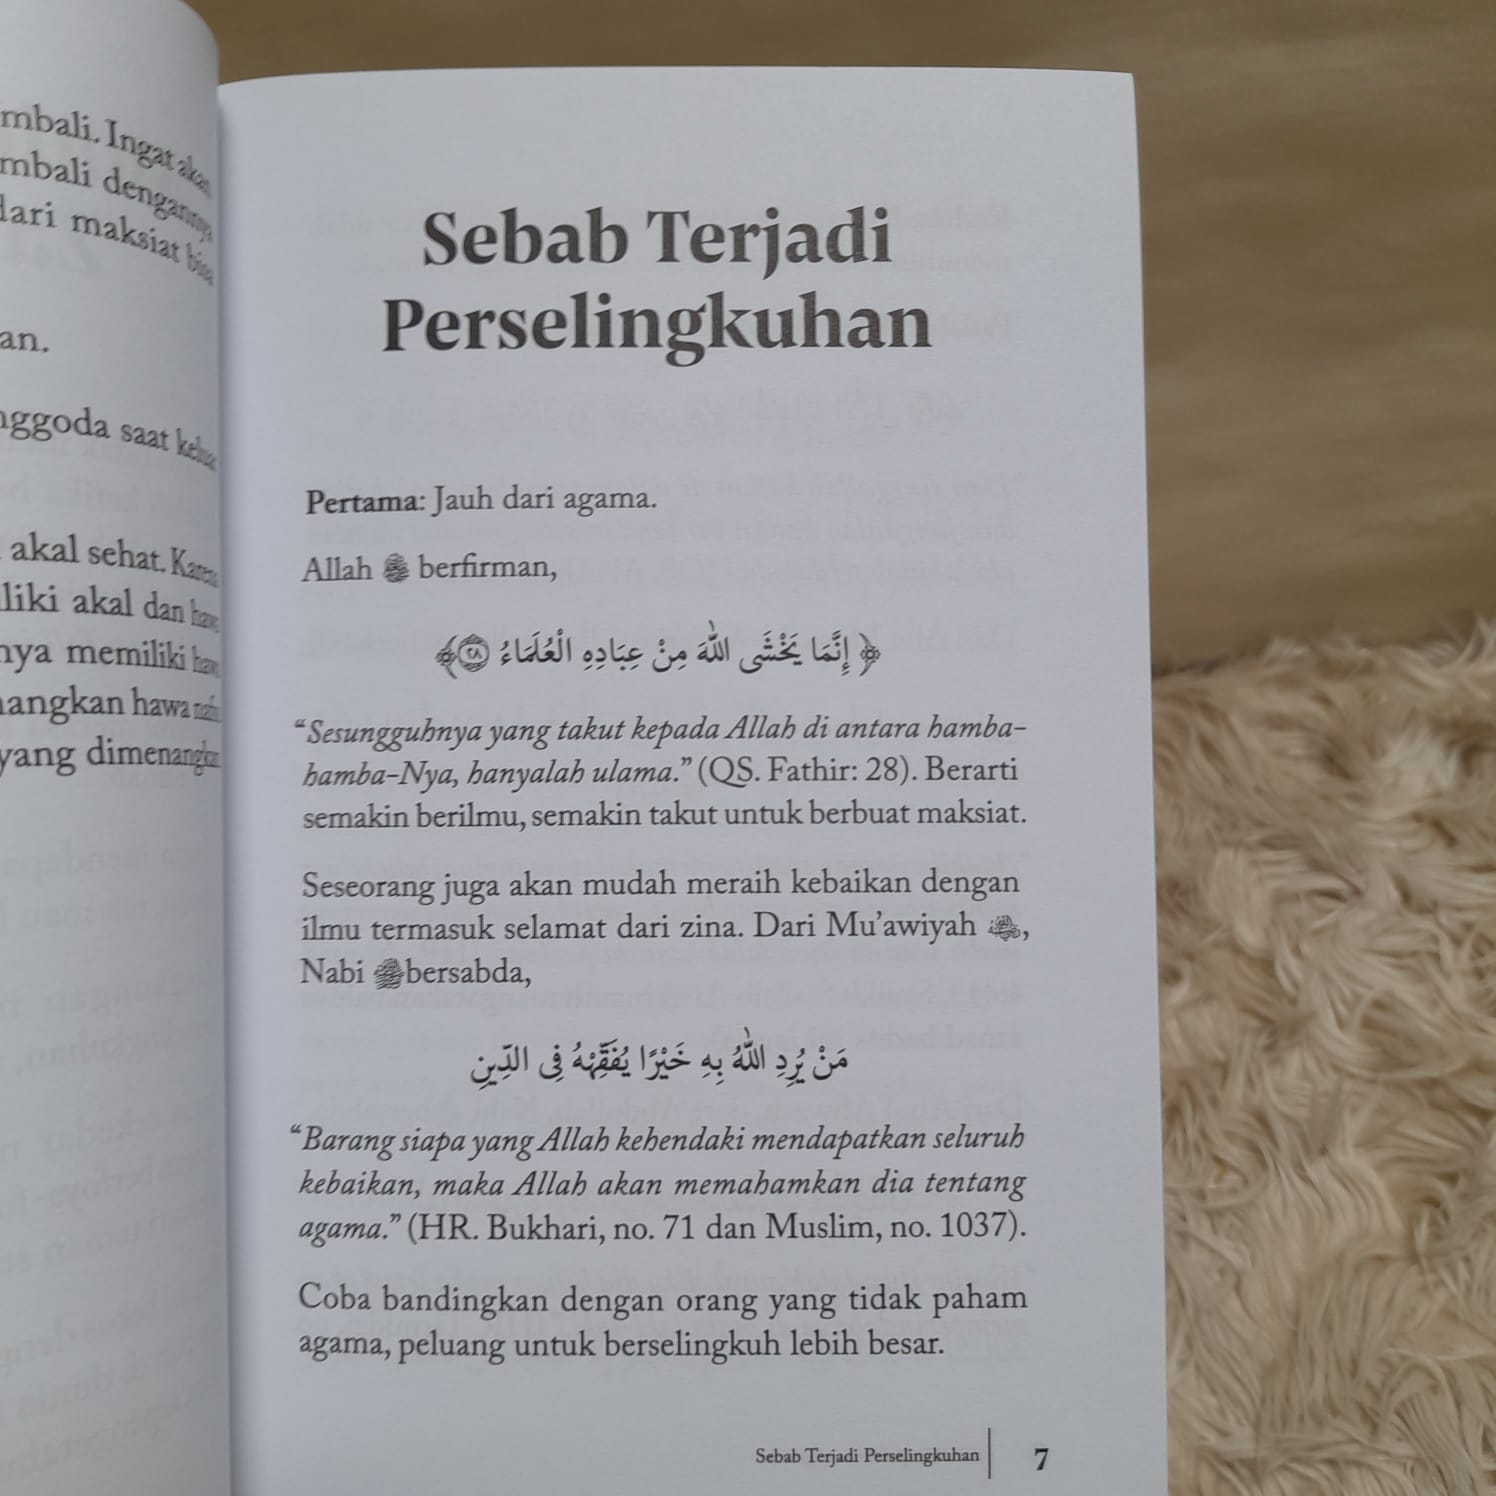 mbali. Ingat akan
mbali dengannya
dari maksiat bisa
an.
nggoda saat keluar
akal sehat. Karena
liki akal dan hawa
nya memiliki hawa
nangkan hawa nafsu
yang dimenangkan
Sebab Terjadi
Perselingkuhan
Pertama: Jauh dari agama.
Allah ﷻ berfirman,
﴿ إِنَّمَا يَخْشَى اللّٰهَ مِنْ عِبَادِهِ الْعُلَمَاءُ ۝٢٨ ﴾
“Sesungguhnya yang takut kepada Allah di antara hamba-
hamba-Nya, hanyalah ulama.” (QS. Fathir: 28). Berarti
semakin berilmu, semakin takut untuk berbuat maksiat.
Seseorang juga akan mudah meraih kebaikan dengan
ilmu termasuk selamat dari zina. Dari Mu’awiyah ,
Nabi ﷺ bersabda,
مَنْ يُرِدِ اللّٰهُ بِهِ خَيْرًا يُفَقِّهْهُ فِى الدِّينِ
“Barang siapa yang Allah kehendaki mendapatkan seluruh
kebaikan, maka Allah akan memahamkan dia tentang
agama.” (HR. Bukhari, no. 71 dan Muslim, no. 1037).
Coba bandingkan dengan orang yang tidak paham
agama, peluang untuk berselingkuh lebih besar.
Sebab Terjadi Perselingkuhan | 7